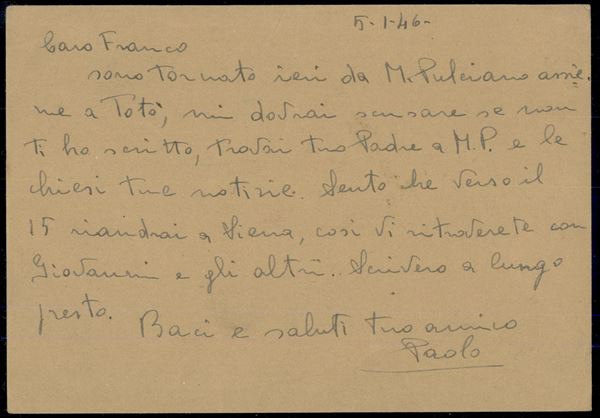 5-1-46-
Caro Franco
sono tornato ieri da M. Pulciano assie
me a Totò, mi dovrai scusare se non
ti ho scritto, trovai tuo Padre a M.P. e le
chiesi tue notizie. Sento che verso il
15 riandrai a Siena, così vi ritroverete con
Giovannin e gli altri. Scriverò a lungo
presto.
Baci e saluti tuo amico
Paolo